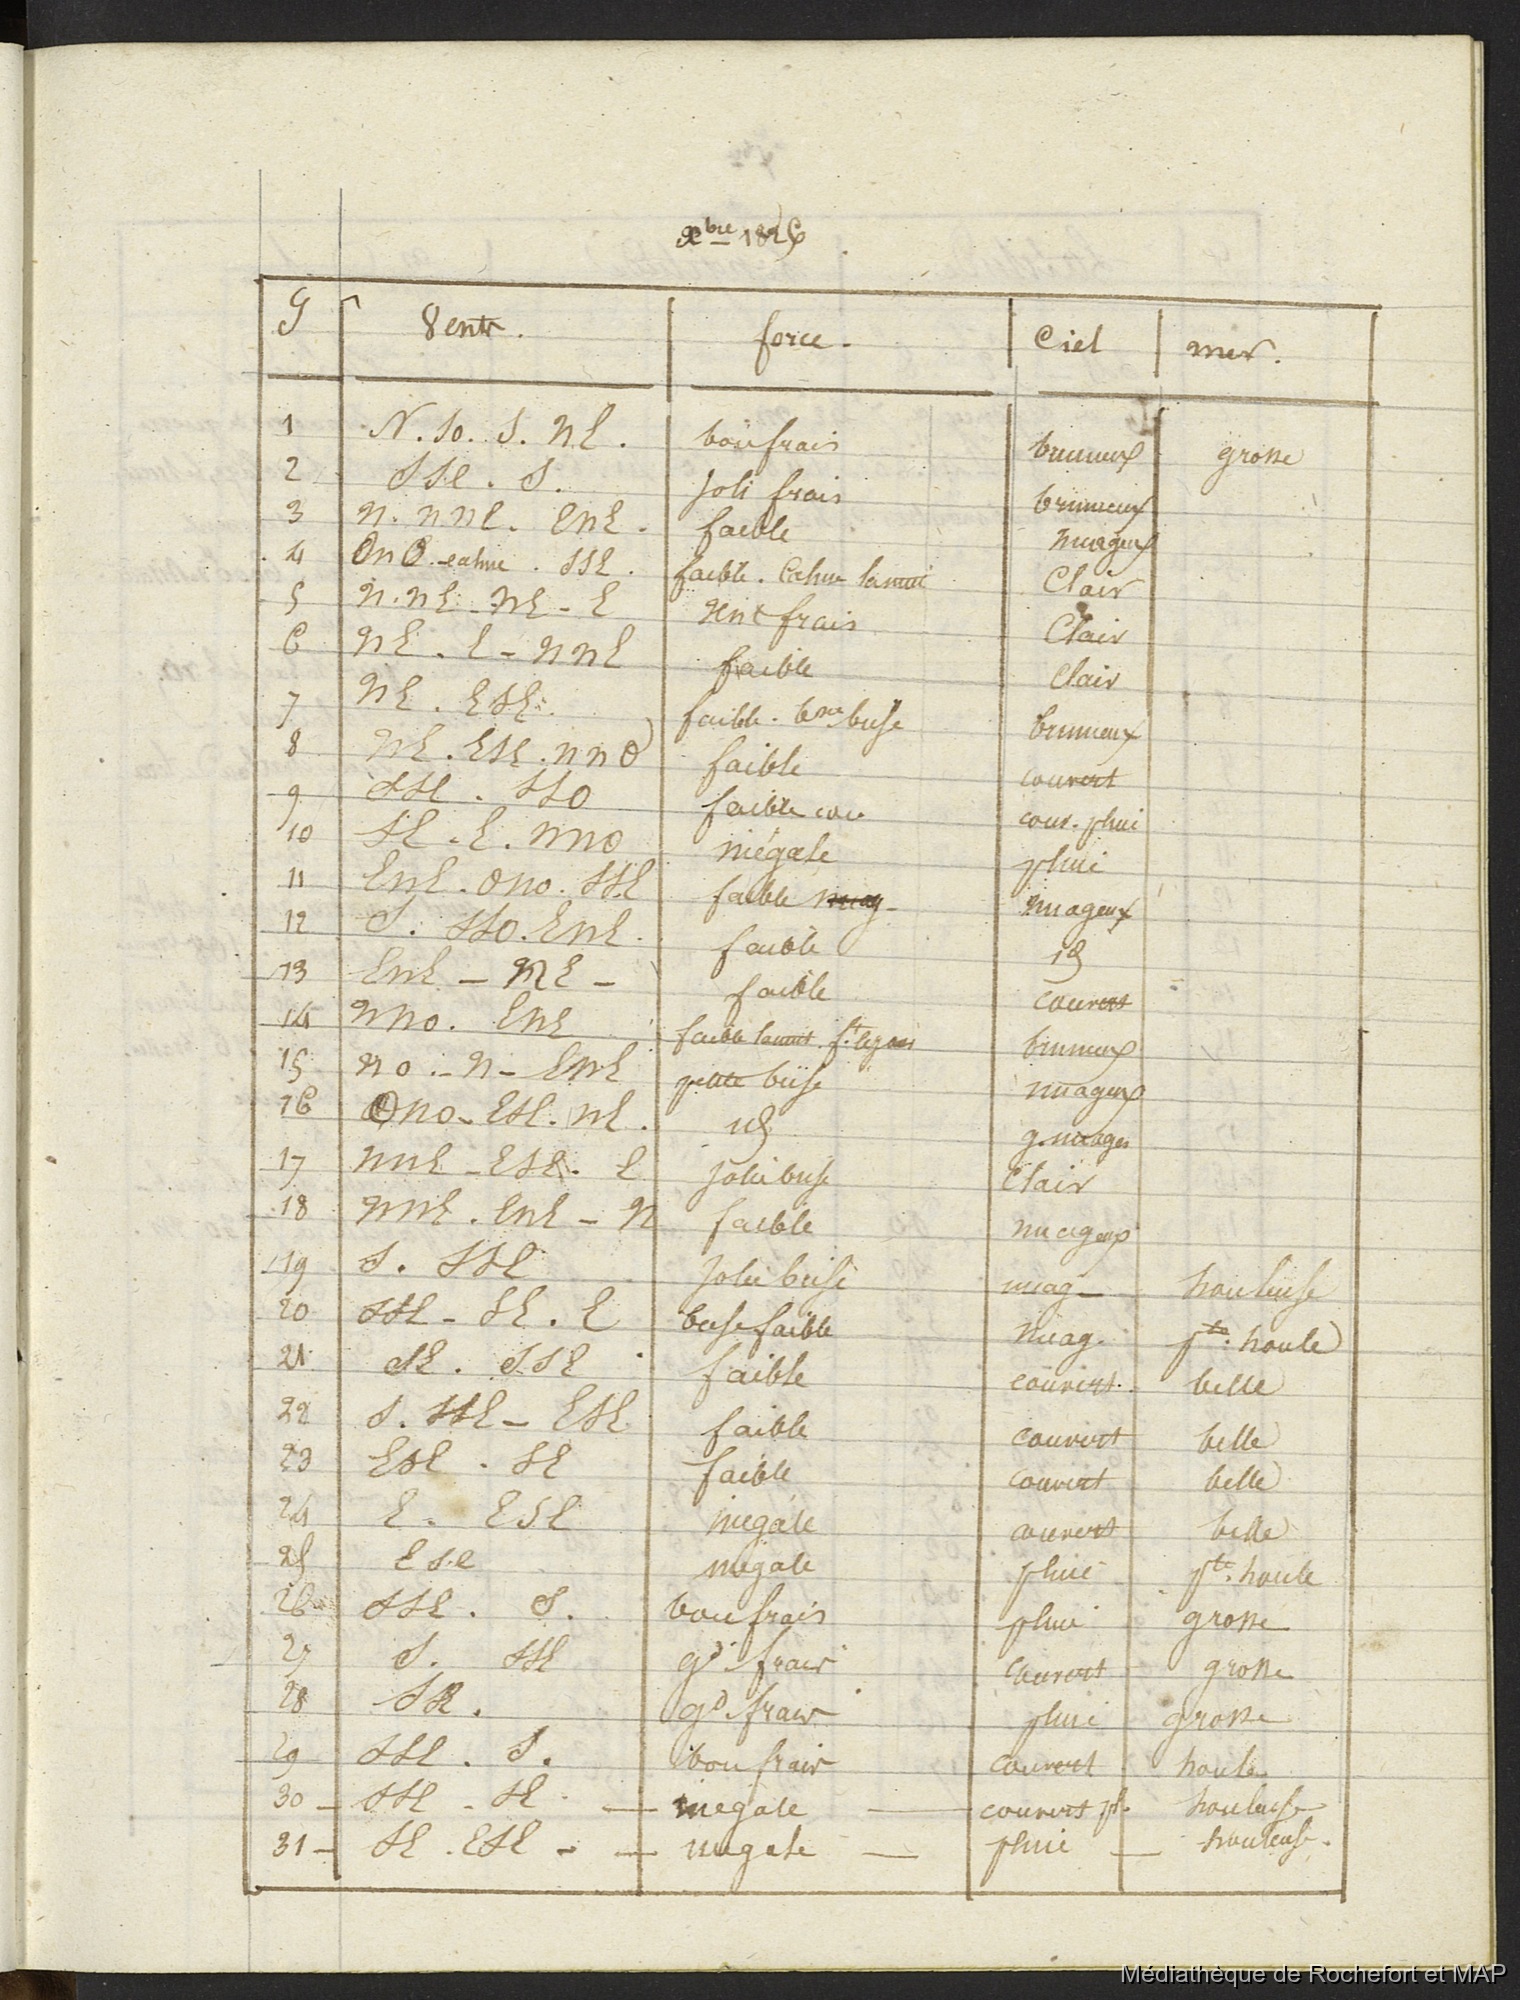 Xbre 1826
J Vents. force. Ciel mer.
1 N. SO. S. NE. bon frais brumeux grosse
2 SSE. S. joli frais brumeux
3 N. NNE. ENE. faible nuageux
4 ONO. calme. SSE. faible. Calme la nuit Clair
5 N. NE - NE - E vent frais Clair
6 NE. E - NNE faible Clair
7 NE. ESE. faible. bne brise brumeux
8 NE. ESE. NNO faible couvert
9 SSE. SSO faible couv. pluie
10 SE. E. NNO inégale pluie
11 ENE. ONO. SSE faible nuageux
12 S. SSO. ENE. faible id
13 ENE - NE - faible couvert
14 NNO. ENE faible la nuit brumeux
15 NO. - N - ENE petite brise nuageux
16 ONO - ESE. NE. id g. nuages
17 NNE - ESE. E jolie brise Clair
18 NNE. ENE - N faible nuageux
19 S. SSE jolie brise nuag - houleuse
20 SSE - SE. E brise faible nuag. pte. houle
21 SE. SSE faible couvert. belle
22 S. SSE - ESE faible couvert belle
23 ESE. SE faible couvert belle
24 E. ESE inégale couvert belle
25 ESE inégale pluie pte. houle
26 SSE. S. bon frais pluie grosse
27 S. SSE gd. frais couvert grosse
28 SE. gd. frais pluie grosse
29 SSE. S. bon frais couvert houle
30 - SSE - SE - inégale - couvert pl. houleuse
31 - SE. ESE - - inégale - pluie - houleuse.
Médiathèque de Rochefort et MAP